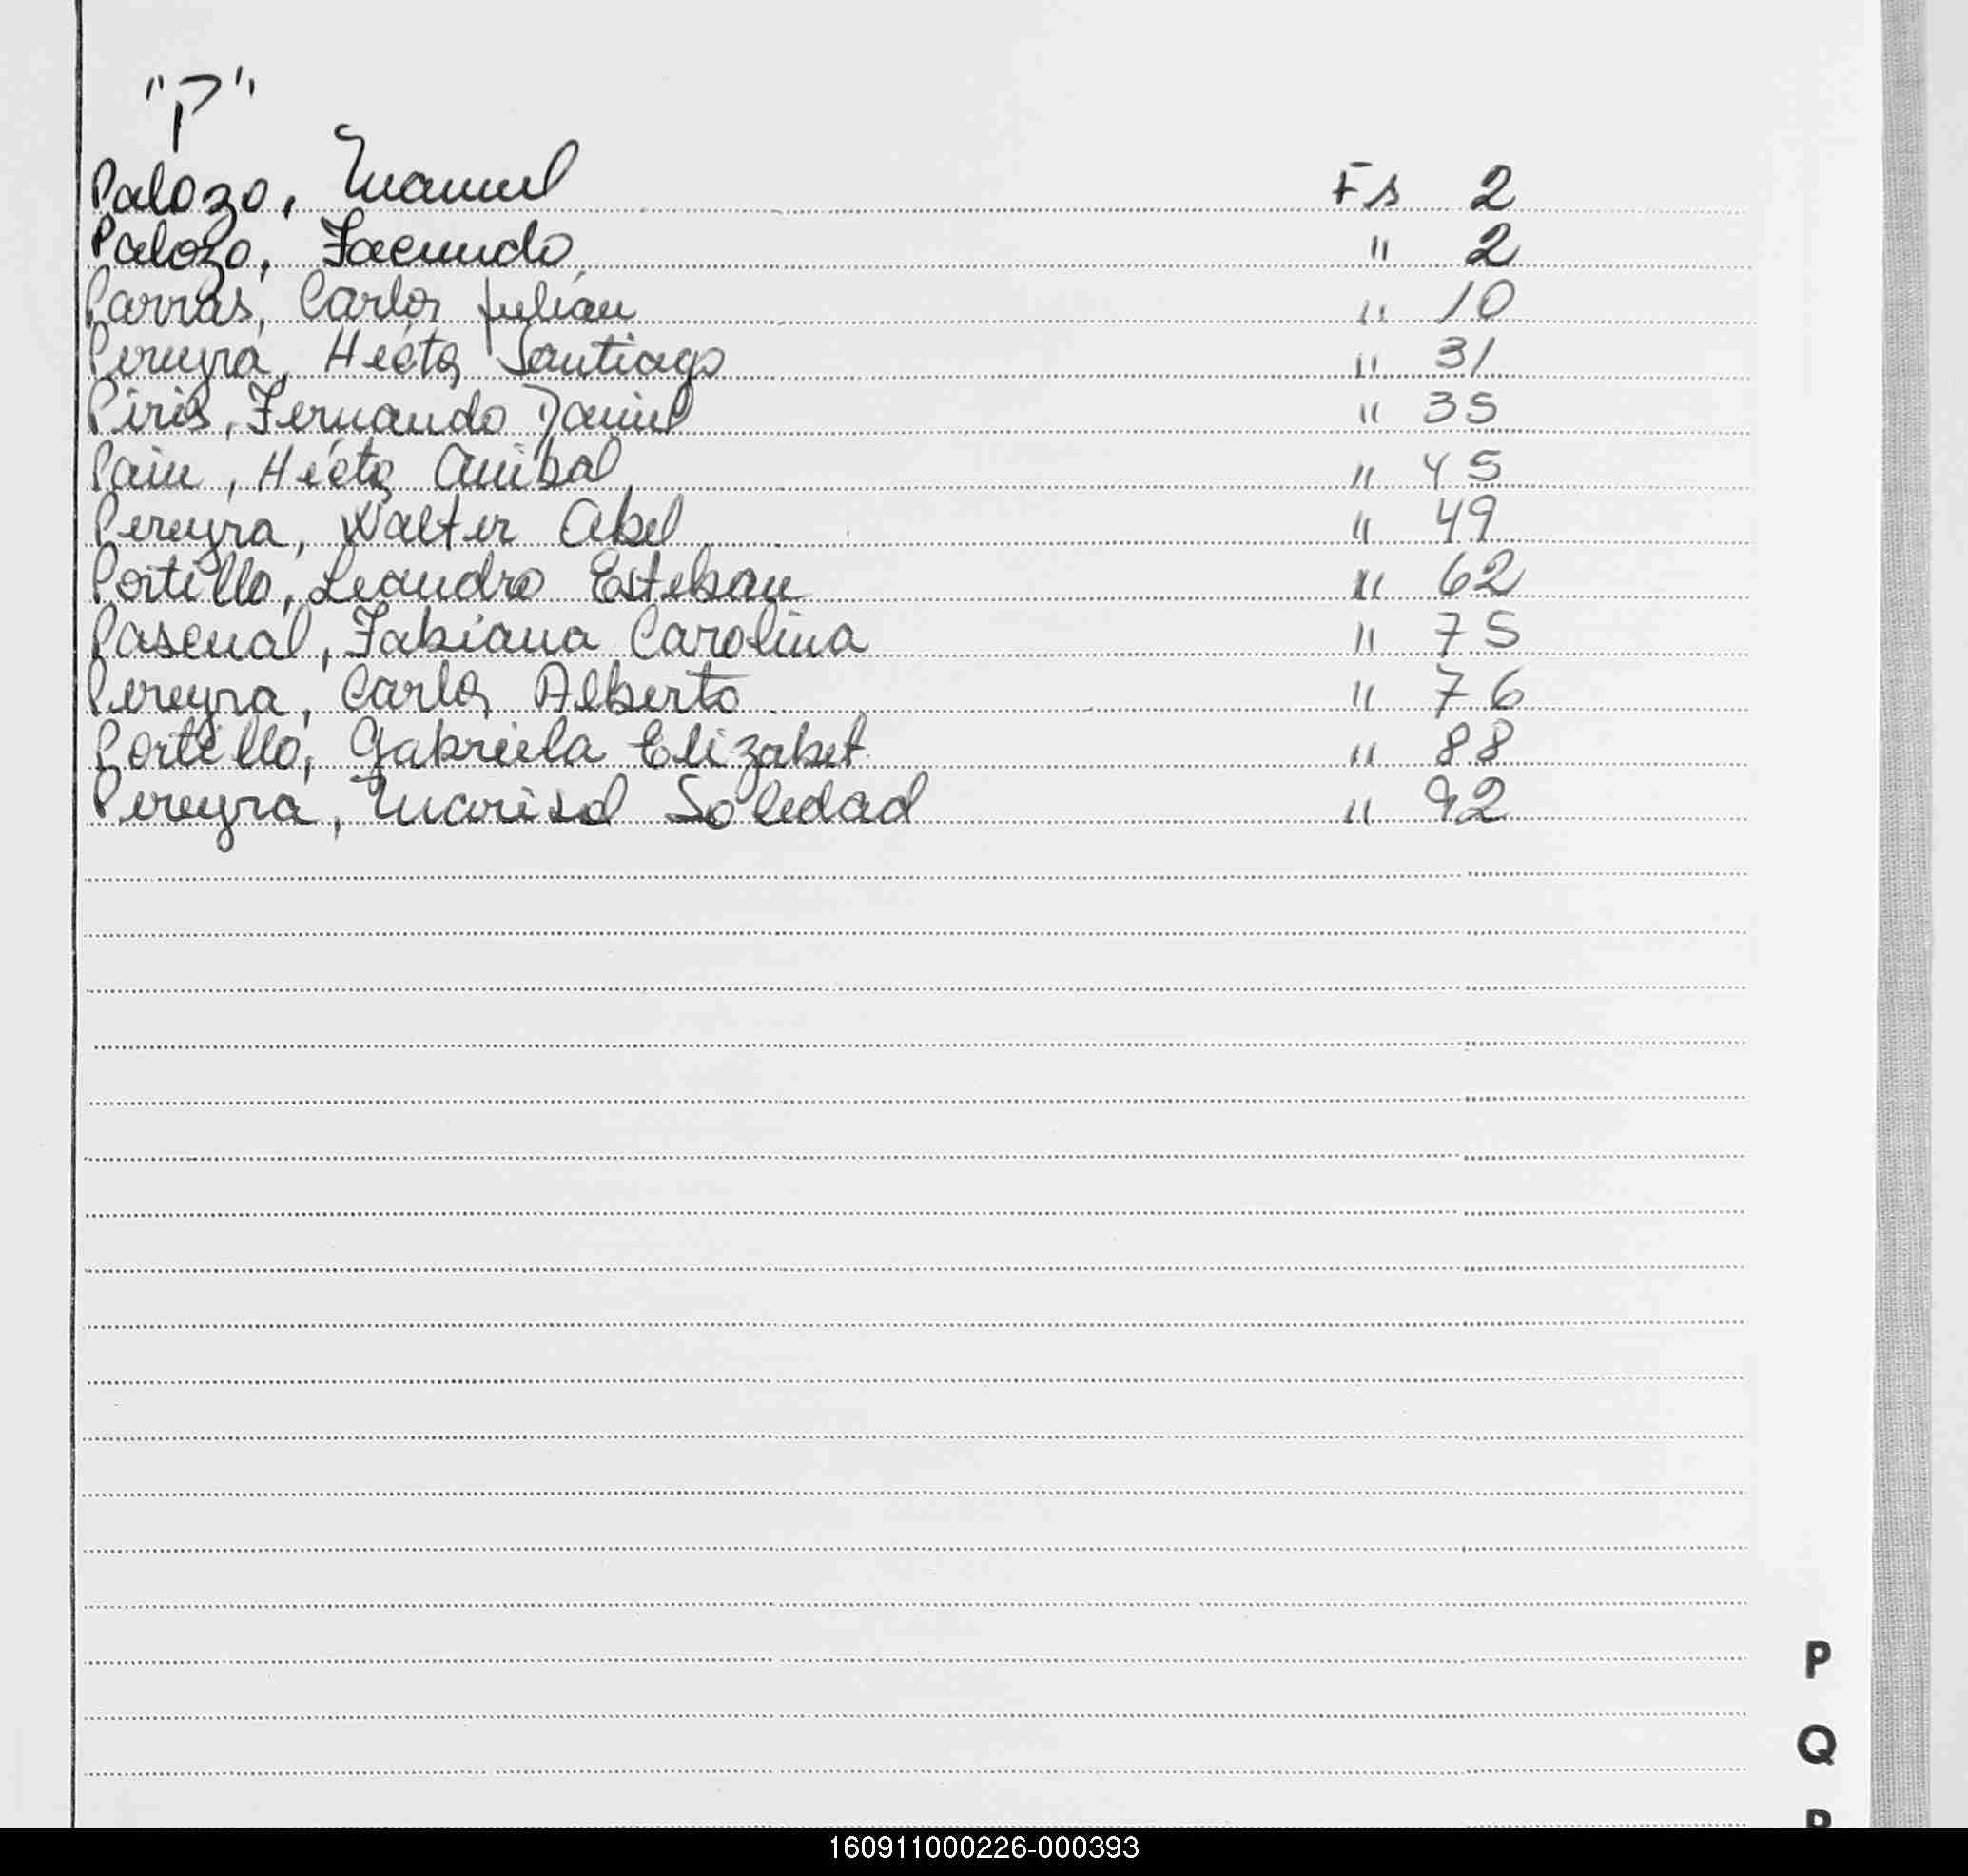 "P"
Palozo, Manuel Fs 2
Palozo, Facundo " 2
Parras, Carlos Julián " 10
Pereyra, Héctor Santiago " 31
Piris, Fernando Daniel " 35
Pain, Héctor Anibal " 45
Pereyra, Walter Abel " 49
Portillo, Leandro Esteban " 62
Pascual, Fabiana Carolina " 75
Pereyra, Carlos Alberto " 76
Portillo, Gabriela Elizabet " 88
Pereyra, Marisol Soledad " 92
P
Q
160911000226-000393